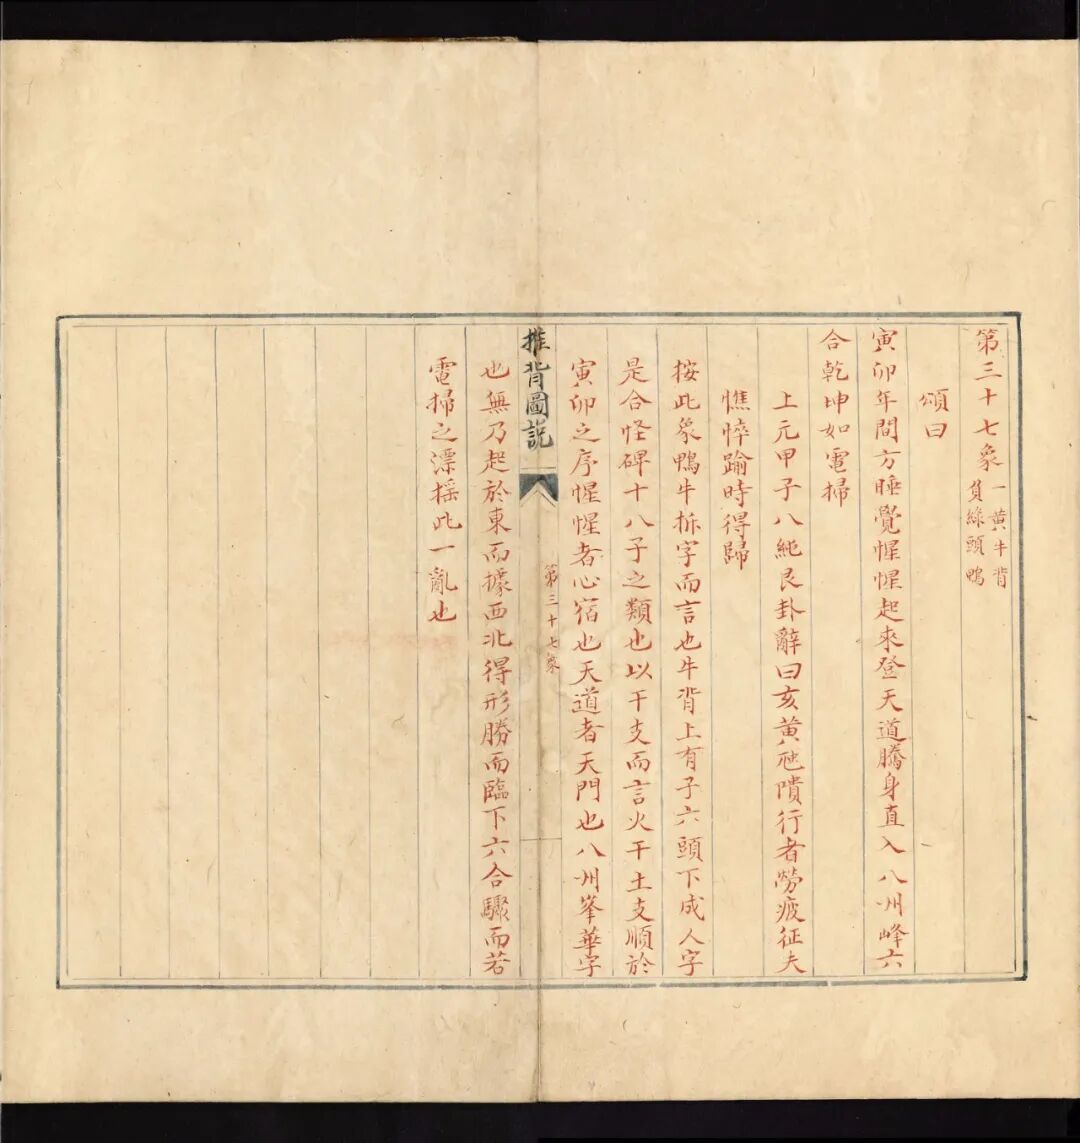 第三十七象 一黃牛背
負綠頭鴨
頌曰
寅卯年間方睡覺惺惺起來登天道騰身直入八州峰六
合乾坤如電掃
上元甲子八純艮卦辭曰亥黃虺隤行者勞疲征夫
憔悴踰時得歸
按此象鴨牛拆字而言也牛背上有子六頭下成人字
是合怪碑十八子之類也以干支而言火干土支順於
寅卯之序惺惺者心宿也天道者天門也八州峯華字
推背圖説
第三十七象
也無乃起於東而據西北得形勝而臨下六合驟而若
電掃之漂搖此一亂也